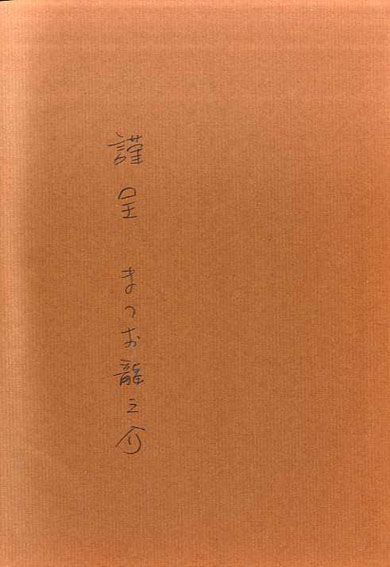 謹呈 まつお龍之介